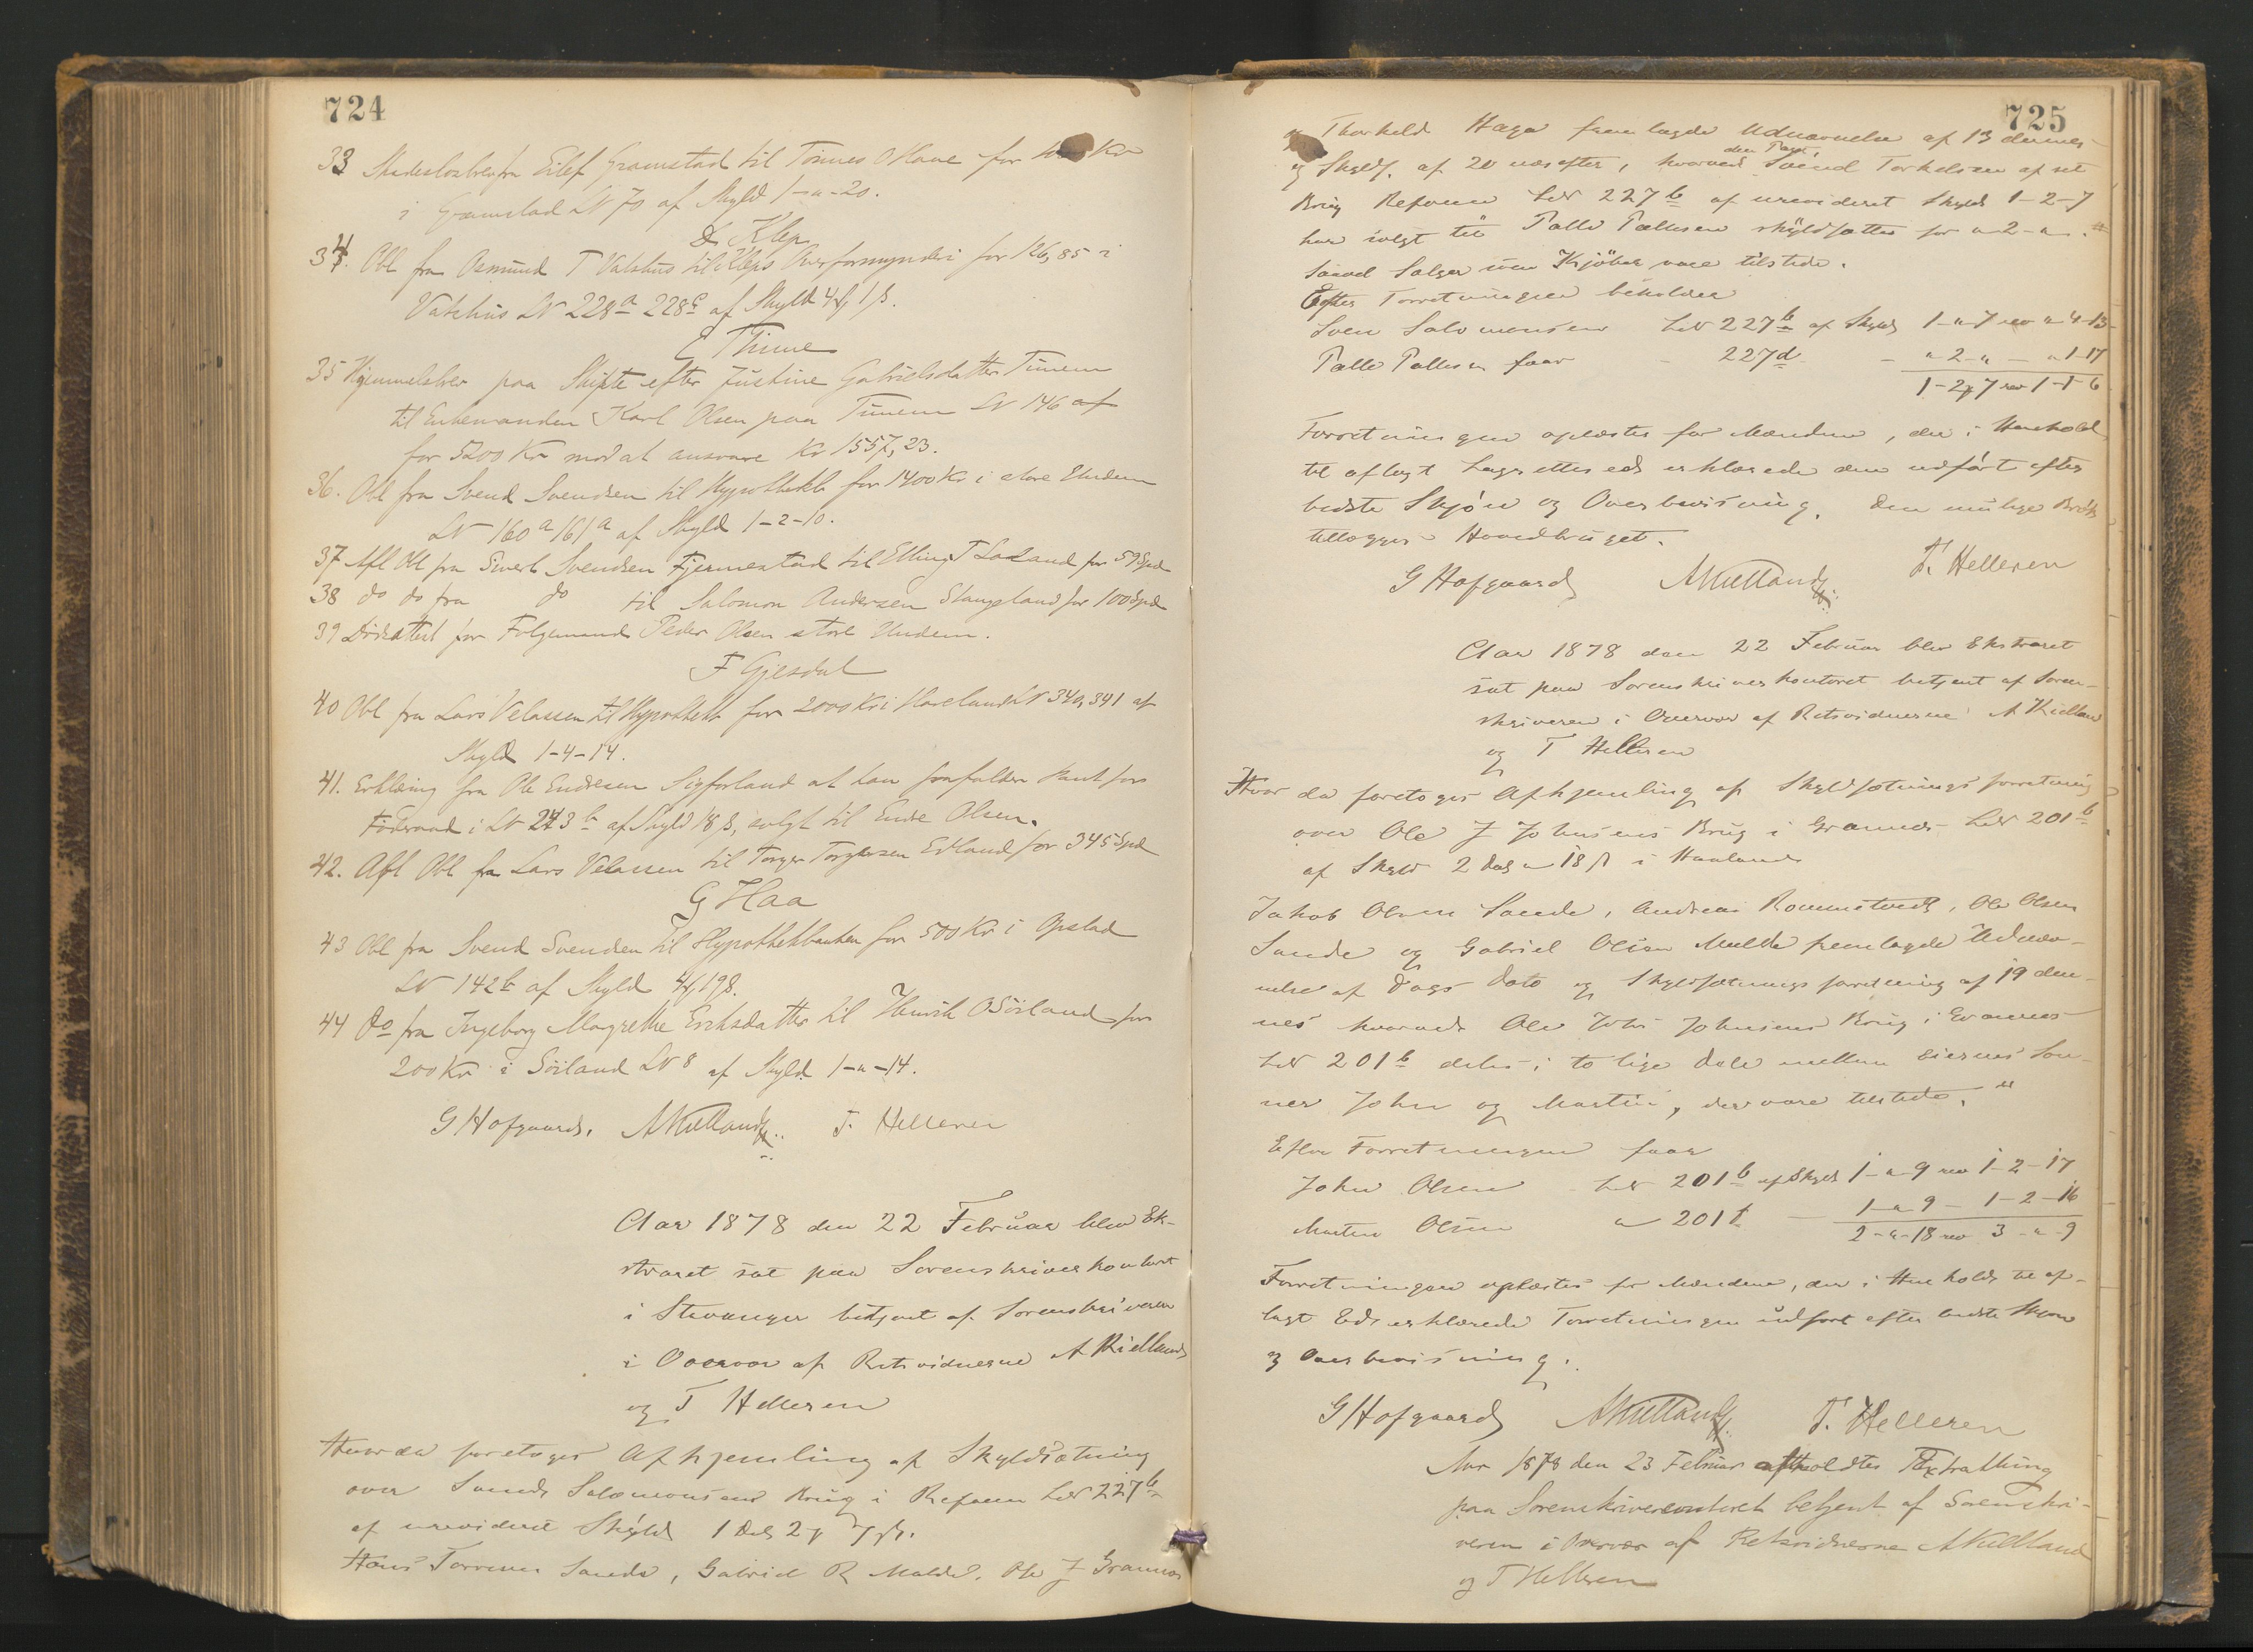 724
33 Skadesløsbrev fra Eilef Gramstad til Tønnes O Hove for Kr
i Gramstad LN 70 af Skyld 1-"-20.
D Klep
34. Obl fra Asmund T Vatshus til Kleps Overformynderi for 126,85 i
Vatshus LN 228a 228c af Skyld 4 1 ß.
E Thime
35 Hjemmelsbrev paa Skifte efter Justine Gabrielsdatter Timem
til Enkemanden Karl Olsen paa Timem LN 146 af
for 5200 Kr mod at ansvare Kr 1557,23.
36. Obl fra Svend Svendsen til Hypothekb for 1400 Kr i store Undem
LN 160a 161a af Skyld 1-2-10.
37 Afl Obl fra Sivert Svendsen Fjermestad til Elling T Laland for 59 Spd
38 do do fra do til Salomon Andersen Stangeland for 100 Spd
39 Dødsattest for Følgemand Peder Olsen store Undem.
F Gjesdal
40 Obl fra Lars Velassen til Hypothekb for 2000 Kr i Haveland LN 340, 341 af
Skyld 1-4-14.
41. Erklæring fra Ole Endresen Sigforland at han frafalder Pant for
Føderaad i LN 243b af Skyld 18 ß, solgt til Endre Olsen.
42. Afl Obl fra Lars Velassen til Torger Torgersen Edland for 345 Spd
G Haa
43 Obl fra Svend Svendsen til Hypothekbanken for 500 Kr i Opstad
LN 142b af Skyld 4 19 ß.
44 do fra Ingeborg Margrethe Eriksdatter til Henrik O Söiland for
200 Kr i Söiland LN 8 af Skyld 1-"-14.
G Hofgaard. A Kielland T. Helleren
Aar 1878 den 22 Februar blev Ek-
straret sat paa Sorenskriverkontoret
i Stavanger betjent af Sorenskriveren
i Overvær af Retsvidnerne A Kielland
og T Helleren
Hvor da foretoges Afhjemling af Skyldsætning
over Svends Salomonsens Brug i Refsnes LN 227b
af urevideret Skyld 1 Dal 2 7 ß.
Hans Torresen Sande, Gabriel R Malde, Ole J Grannes
725
og Thorkeld Haga fremlagde Udnævnelse af 13 dennes
og Skyldf. af 20 næstefter, hvorved den Part Svend Torkelsen af sit
Brug Refsnes LN 227b af urevideret Skyld 1-2-7
har solgt til Palle Pallesen skyldsattes for "-2-".
Saavel Sælger som Kjöber vare tilstede.
Efter Forretningen beholder
Sven Salomonsen LN 227b af Skyld 1-"-7 rev "-4-13
Palle Pallesen faar - 227d - "-2-" - "-1-17
1-2-7 rev 1-1-6
Forretningen oplæstes for Mændene, der i Henhold
til aflagt Lagrettesed erklærede den udført efter
bedste Skjön og Overbevisning. Den mulige Brök
tillægges Hovedbruget.
G Hofgaard A Kielland T. Helleren
Aar 1878 den 22 Februar blev Ekstraret
sat paa Sorenskriverkontoret betjent af Soren-
skriveren i Overvær af Retsvidnerne A Kielland
og T Helleren
Hvor da foretoges Afhjemling af Skyldsætningsforretning
over Ole J Johnsens Brug i Grannes LN 201b
af Skyld 2 Dal " 18 ß i Haaland
Jakob Olsen Sande, Andreas Rommetvedt, Ole Olsen
Sande og Gabriel Olsen Malde fremlagde Udnæv-
nelse af Dags Dato og Skyldsætningsforretning af 19 den-
nes hvorved Ole Johs Johnsens Brug i Grannes
LN 201b deles i to lige Dele mellem Eiernes Søn-
ner John og Martin, der vare tilstede."
Efter Forretningen faar
John Olsen LN 201b af Skyld 1-"-9 rev 1-2-17
Martin Olsen " 201f - 1-"-9 - 1-2-16
2-"-18 rev 3-"-9
Forretningen oplæstes for Mændene, der i Henhold til af-
lagt Ed erklærede Forretningen udført efter bedste Skjøn
og Overbevisning.
G Hofgaard A Kielland T. Helleren
Aar 1878 den 23 Februar afholdtes Extrathing
paa Sorenskrivercontoret betjent af Sorenskri-
veren i Overvær af Retsvidnerne A Kielland
og T Helleren